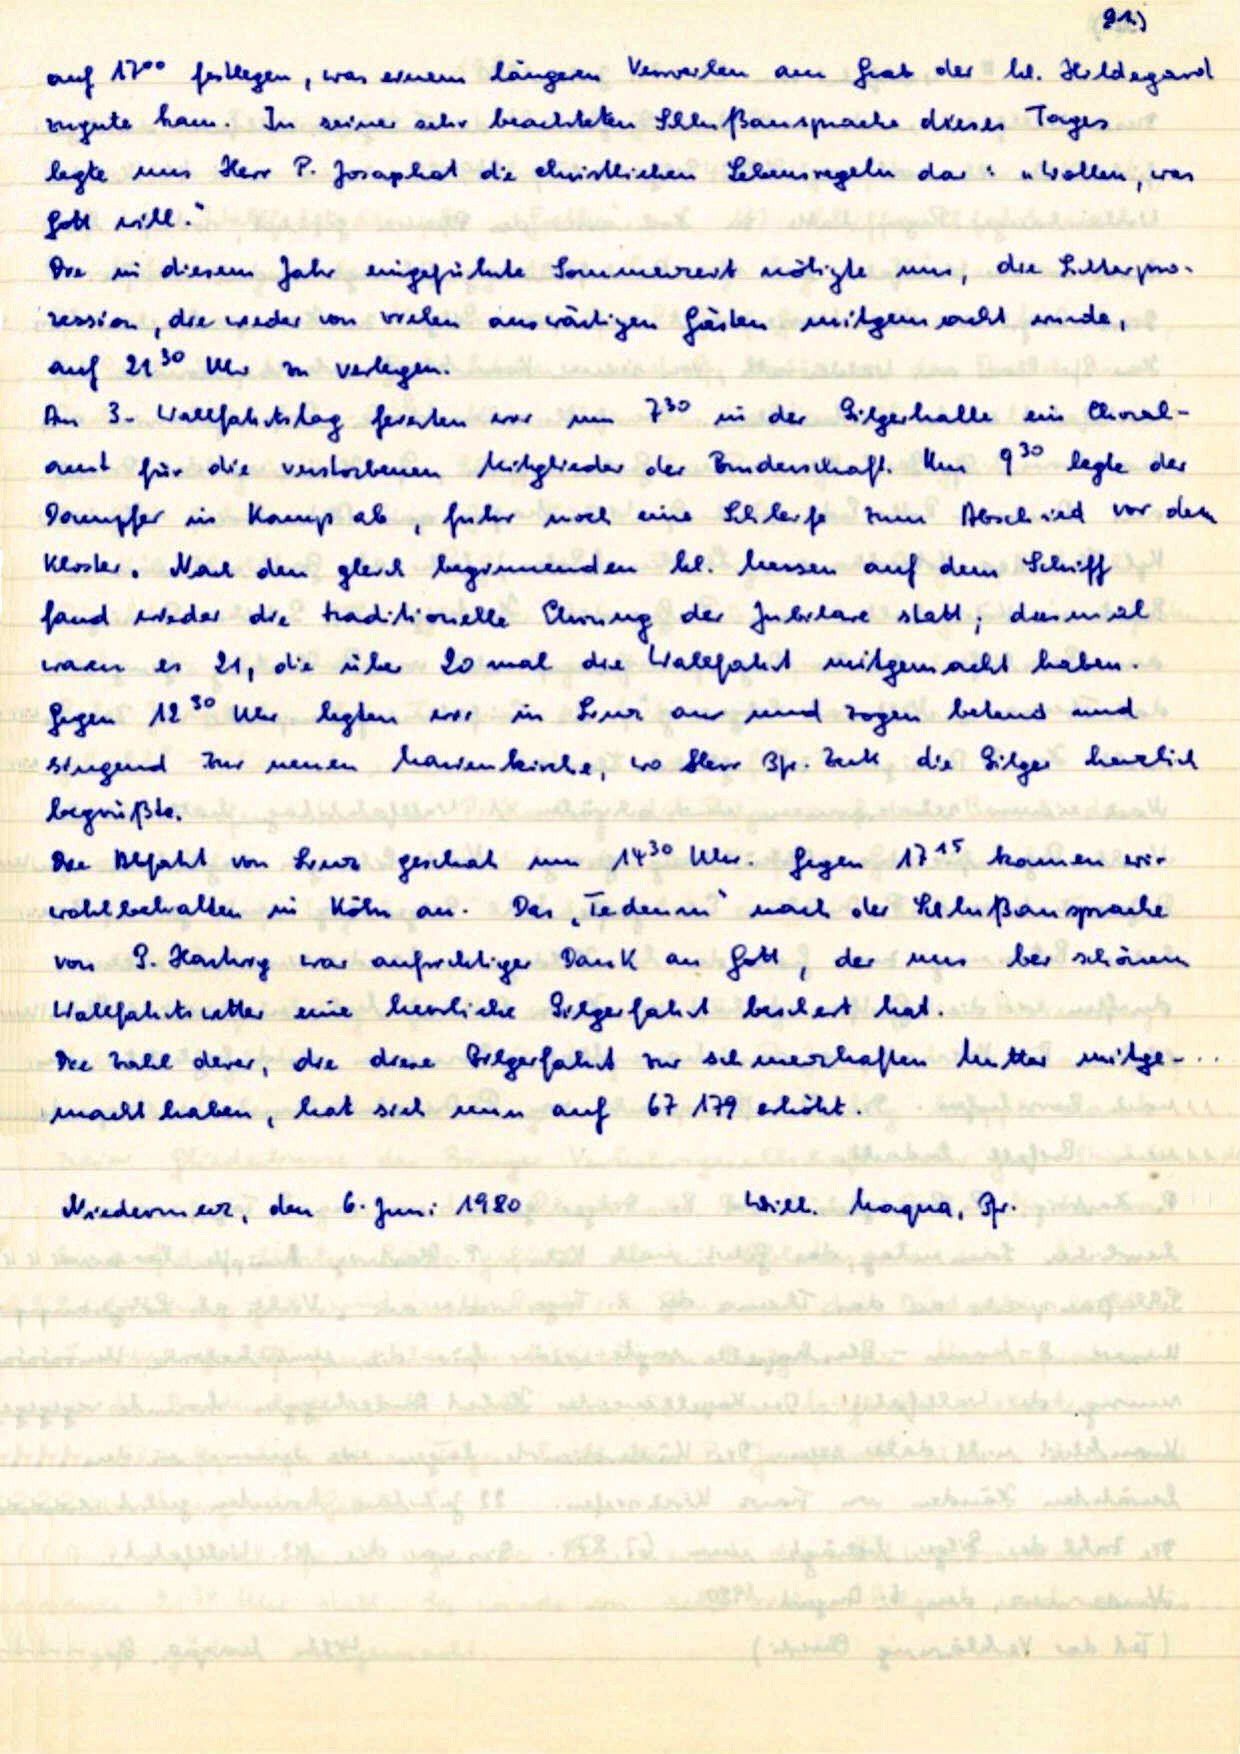 91.)
auf 17⁰⁰ festlegen, was einem längeren Verweilen am Grab der hl. Hildegard
zugute kam. In seiner sehr beachteten Schlußansprache dieses Tages
legte uns Herr P. Josaphat die christlichen Lebensregeln dar: „Wollen, was
Gott will."
Die in diesem Jahr eingeführte Sommerzeit nötigte uns, die Lichterpro-
zession, die wieder von vielen auswärtigen Gästen mitgemacht wurde,
auf 21³⁰ Uhr zu verlegen.
Am 3. Wallfahrtstag feierten wir um 7³⁰ in der Pilgerhalle ein Choral-
amt für die verstorbenen Mitglieder der Bruderschaft. Um 9³⁰ legte der
Dampfer in Kamp ab, fuhr noch eine Schleife zum Abschied vor dem
Kloster. Nach den gleich beginnenden hl. Messen auf dem Schiff
fand wieder die traditionelle Ehrung der Jubilare statt; diesmal
waren es 21, die über 20 mal die Wallfahrt mitgemacht haben.
Gegen 12³⁰ Uhr legten wir in Linz an und zogen betend und
singend zur neuen Marienkirche, wo Herr Pfr. die Pilger herzlich
begrüßte.
Die Abfahrt von Linz geschah um 14³⁰ Uhr. Gegen 17¹⁵ kamen wir
wohlbehalten in Köln an. Das „Tedeum" nach der Schlußansprache
von P. Hartwig war aufrichtiger Dank an Gott, der uns bei schönem
Wallfahrtswetter eine herrliche Pilgerfahrt beschert hat.
Die Zahl derer, die diese Pilgerfahrt zur schmerzhaften Mutter mitge-
macht haben, hat sich nun auf 67 179 erhöht.
Niedermerz, den 6. Juni 1980 Will. Maqua, Pfr.